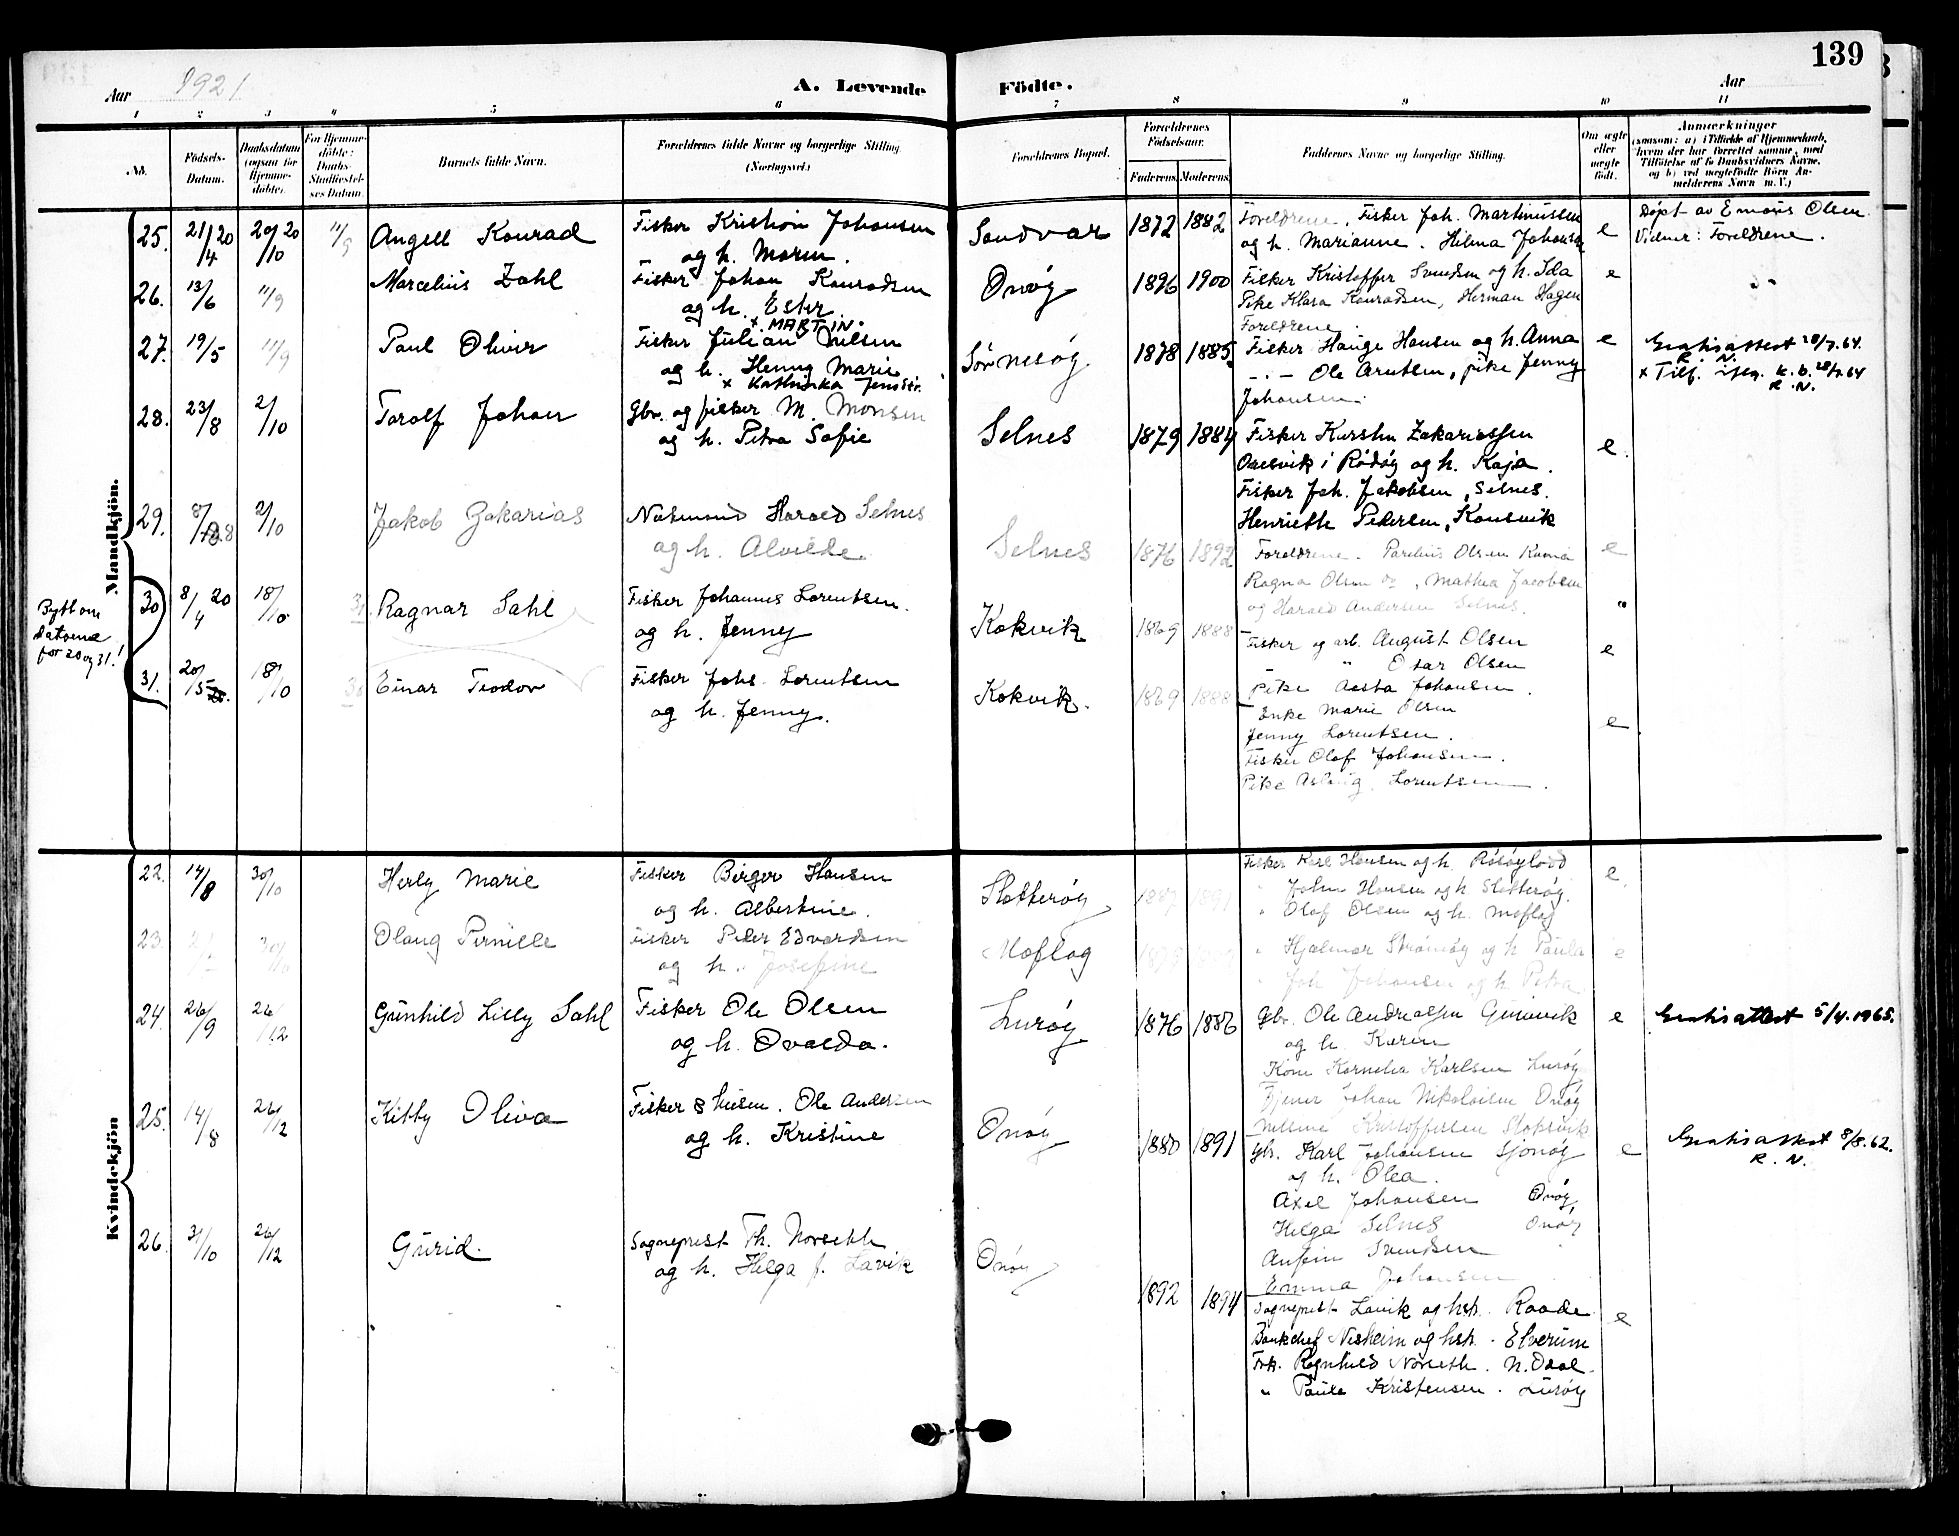 139
Aar 1921 A. Levende Födte. Aar
1 2 3 4 5 6 7 8 9 10 11
No. Födsels-Datum. Daabsdatum (ogsaa for Hjemmedöbte). For Hjemmedöbte: Daabs Stadfæstelses Datum. Barnets fulde Navn. Forældrenes fulde Navne og borgerlige Stilling. (Næringsvei) Forældrenes Bopæl. Forældrenes Födselsaar. Faderens. Moderens. Faddernes Navne og borgerlige Stilling. Om ægte eller uægte født. Anmærkninger
(saasom: a) i Tilfælde af Hjemmedaab, hvem der har forrettet samme, med Tilföielse af to Daabsvidners Navne, og b) ved uægtefödte Börn Anmelderens Navn m. V.)
Mandkjön.
25. 21/4 20 20/10 20 11/9 Angell Konrad Fisker Kristian Johansen Sandvær 1872 1882 Foreldrene, Fisker Joh. Martinussen e Döpt av Olsen
og h. Maren. og h. Marianne. Hilma Johansen Vidner: Foreldrene.
26. 13/6 11/9 Marcelius Zahl Fisker Johan Konradsen Onøy 1896 1900 Fisker Kristoffer Svendsen og h. Ida e "
og h. Ester Pike Klara Konradsen, Herman Hagen
x MARTIN. Foreldrene.
27. 19/5 11/9 Paul Oliver Fisker Julian Nilsen Sørnesøy 1878 1885 Fisker Hauge Hansen og h. Anna e Gratisattest 28/7.64.
R. N.
og h. Henny Marie - " - Ole Arntsen, pike Jenny x Tilf. k. b. 28/7.64
x Kathinka Jensdtr. Johansen. R. N.
28. 23/8 2/10 Torolf Johan Gbr. og fisker M. Monsen Selnes 1879 1884 Fisker Zakariassen e.
og h. Petra Sofie i Rödöy og h. Kaja.
Fisker Joh. Jakobsen, Selnes.
Henriette Pedersen, Konsvik
29. 8/8 2/10 Jakob Zakarias Harald Selnes Selnes 1876 1892 Foreldrene. Parelius Olsen e
og h. Alvilde. Ragna Olsen, Mathea Jacobsen
og Harald Andersen Selnes. "
Bytt om
datoene
for 30 og 31!
30. 8/4 20 18/10 31. Ragnar Dahl Fisker Johannes Lorentsen. Kokvik 1869 1888 Fisker og arb. August Olsen e
og h. Jenny " Olsen
Pike Aasta Johansen.
31. 20/5 18/10 30 Einar Teodor Fisker Johs. Lorentsen Kokvik. 1869 1888 Enke Marie Olsen e
og h. Jenny. Jenny Lorentsen.
Fisker Olaf Johansen.
Pike Lorentsen.
Kvindekjön
22. 14/8 30/10 Herly Marie Fisker Birger Hansen Slotterøy 1887 1891 Fisker Karl Hansen og h. e.
og h. Albertine. " John Hansen og h. Slotterøy.
" Olaf Olsen og h. Moflag
23. 30/10 Olaug Pernille Fisker Peder Edvardsen Moflag " Hjalmar Strømøy og h. Paula e
og h. Josefine " Joh. Johansen og h. Petra.
24. 26/9 26/12 Gunhild Lilly Dahl Fisker Ole Olsen Lurøy 1876 1886 Gbr. Ole Andreassen e Gratisattest 5/4.1965.
og h. Ovalda. og h. Karen
Kone Kornelia Karlsen Lurøy
Tjener Johan Nikolaisen Onøy
Kristoffersen
25. 14/8 26/12 Kitty Oliva Fisker Ole Andersen Onøy 1880 1891 Gbr. Karl Johansen Sjonøy e Gratisattest 8/8.62.
R. N.
og h. Kristine og h. Olea.
Axel Johansen Onøy
Helga Selnes Onøy
Anfin Svendsen
Emma Johansen
26. 31/10 26/12 Gurid. Sogneprest Th. Norseth Onøy 1892 1894 Sogneprest Lavik og hst. Raade e
og h. Helga f. Lavik Bankchef Nesheim og hst. Elverum
Frk. Ragnhild Norseth. N. Odal.
" Paula Kristensen. Lurøy